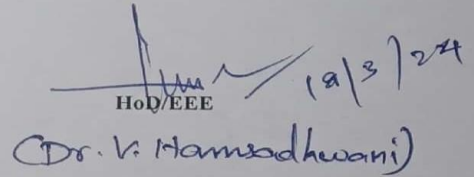 HoD/EEE
(Dr. V. Hamsadhwani)